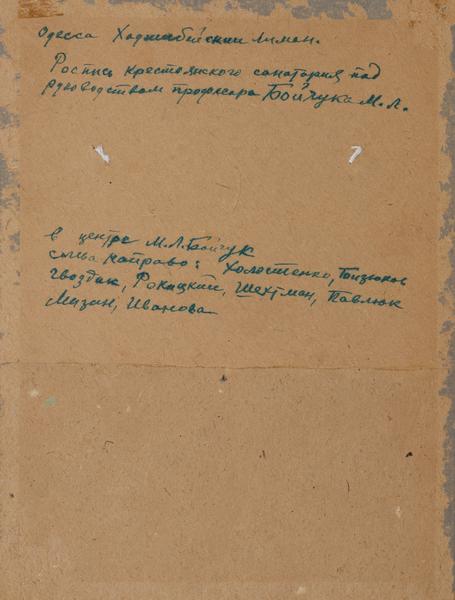 Одесса Хаджибейский лиман.
Роспись крестьянского санатория под
руководством профессора Бойчука М.Л.
в центре М.Л.Бойчук
слева направо: Холостенко, Бизюков
Гвоздик, Рокицкий, Шехтман, Павлюк
Мизин, Иванова